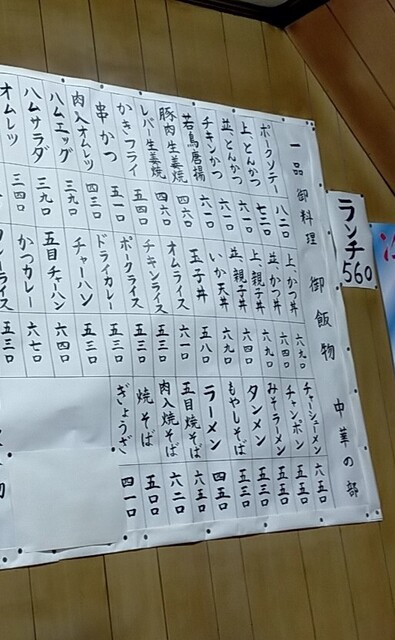 ランチ
560
一品御料理
ポークソテー 八二〇
上、とんかつ 七三〇
並、とんかつ 六一〇
チキンかつ 六一〇
若鳥唐揚 六一〇
豚肉生姜焼 四六〇
レバー生姜焼 四六〇
かきフライ 五四〇
串かつ 五一〇
肉入オムレツ 四三〇
ハムエッグ 三九〇
ハムサラダ 三九〇
オムレツ 三四〇
御飯物
上、かつ丼 六九〇
並、かつ丼 六四〇
上、親子丼 六九〇
並、親子丼 六四〇
いか天丼 六九〇
玉子丼 五八〇
オムライス 六一〇
チキンライス 五三〇
ポークライス 五三〇
ドライカレー 五三〇
チャーハン 五三〇
五目チャーハン 六四〇
かつカレー 六七〇
五三〇
中華の部
チャーシューメン 六五〇
チャンポン 五五〇
みそラーメン 五五〇
タンメン 五三〇
もやしそば 五三〇
ラーメン 四五〇
五目焼そば 六五〇
肉入焼そば 六二〇
焼そば 五〇〇
ぎょうざ 四一〇